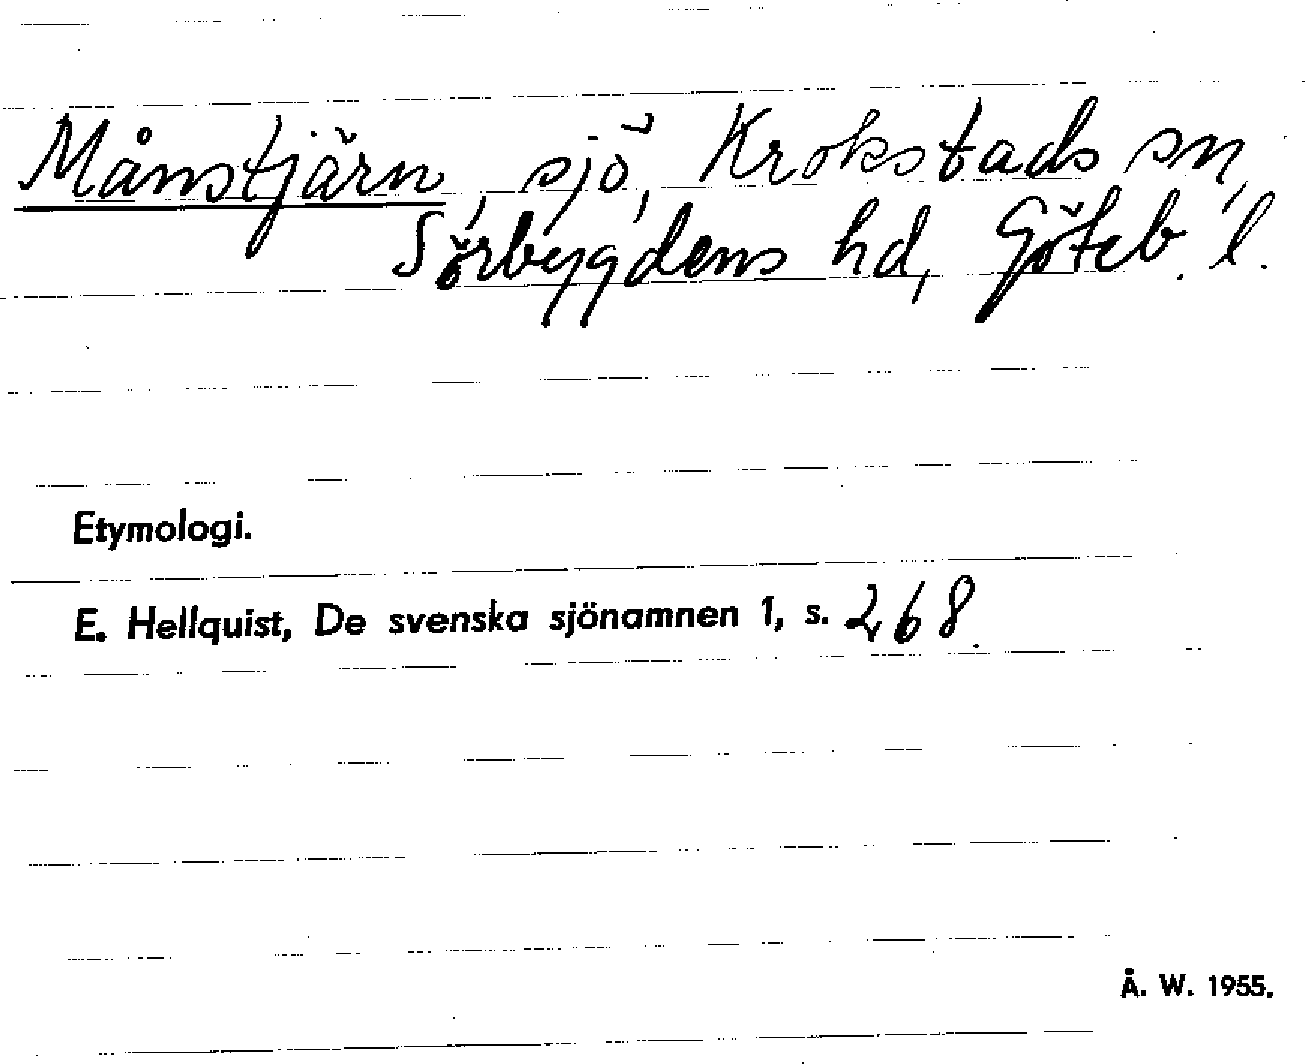 Månstjärn, sjö, Krokstads sn,
Sörbygdens hd, Göteb. l.
Etymologi.
E. Hellquist, De svenska sjönamnen 1, s. 268.
Å. W. 1955.